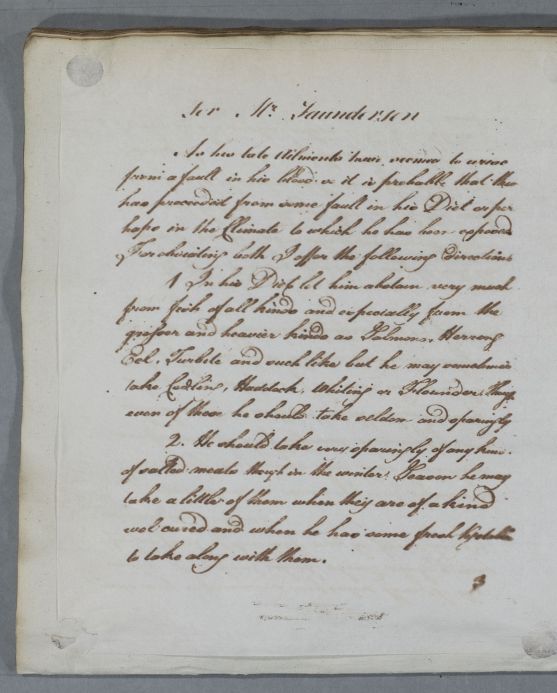 For Mr. Saunderson
As his late Ailments have seemed to arise
from a fault in his blood & it is probable that this
has proceeded from some fault in his Diet or per
haps in the Climate to which he has been exposed
For obviating both I offer the following directions
1 In his Diet let him abstain very much
from fish of all kinds and especially from the
grosser and heavier kinds as Salmon, Herring
Eel, Turbile and such like but he may sometimes
take Codlin, Haddock, Whiting or Flounder, tho
even of these he should take seldom and sparingly
2. He should take very sparingly of any kind
of salted meats tho in the winter Season he may
take a little of them when they are of a kind
wel cured and when he has some fresh Vegetable
to take along with them.
3